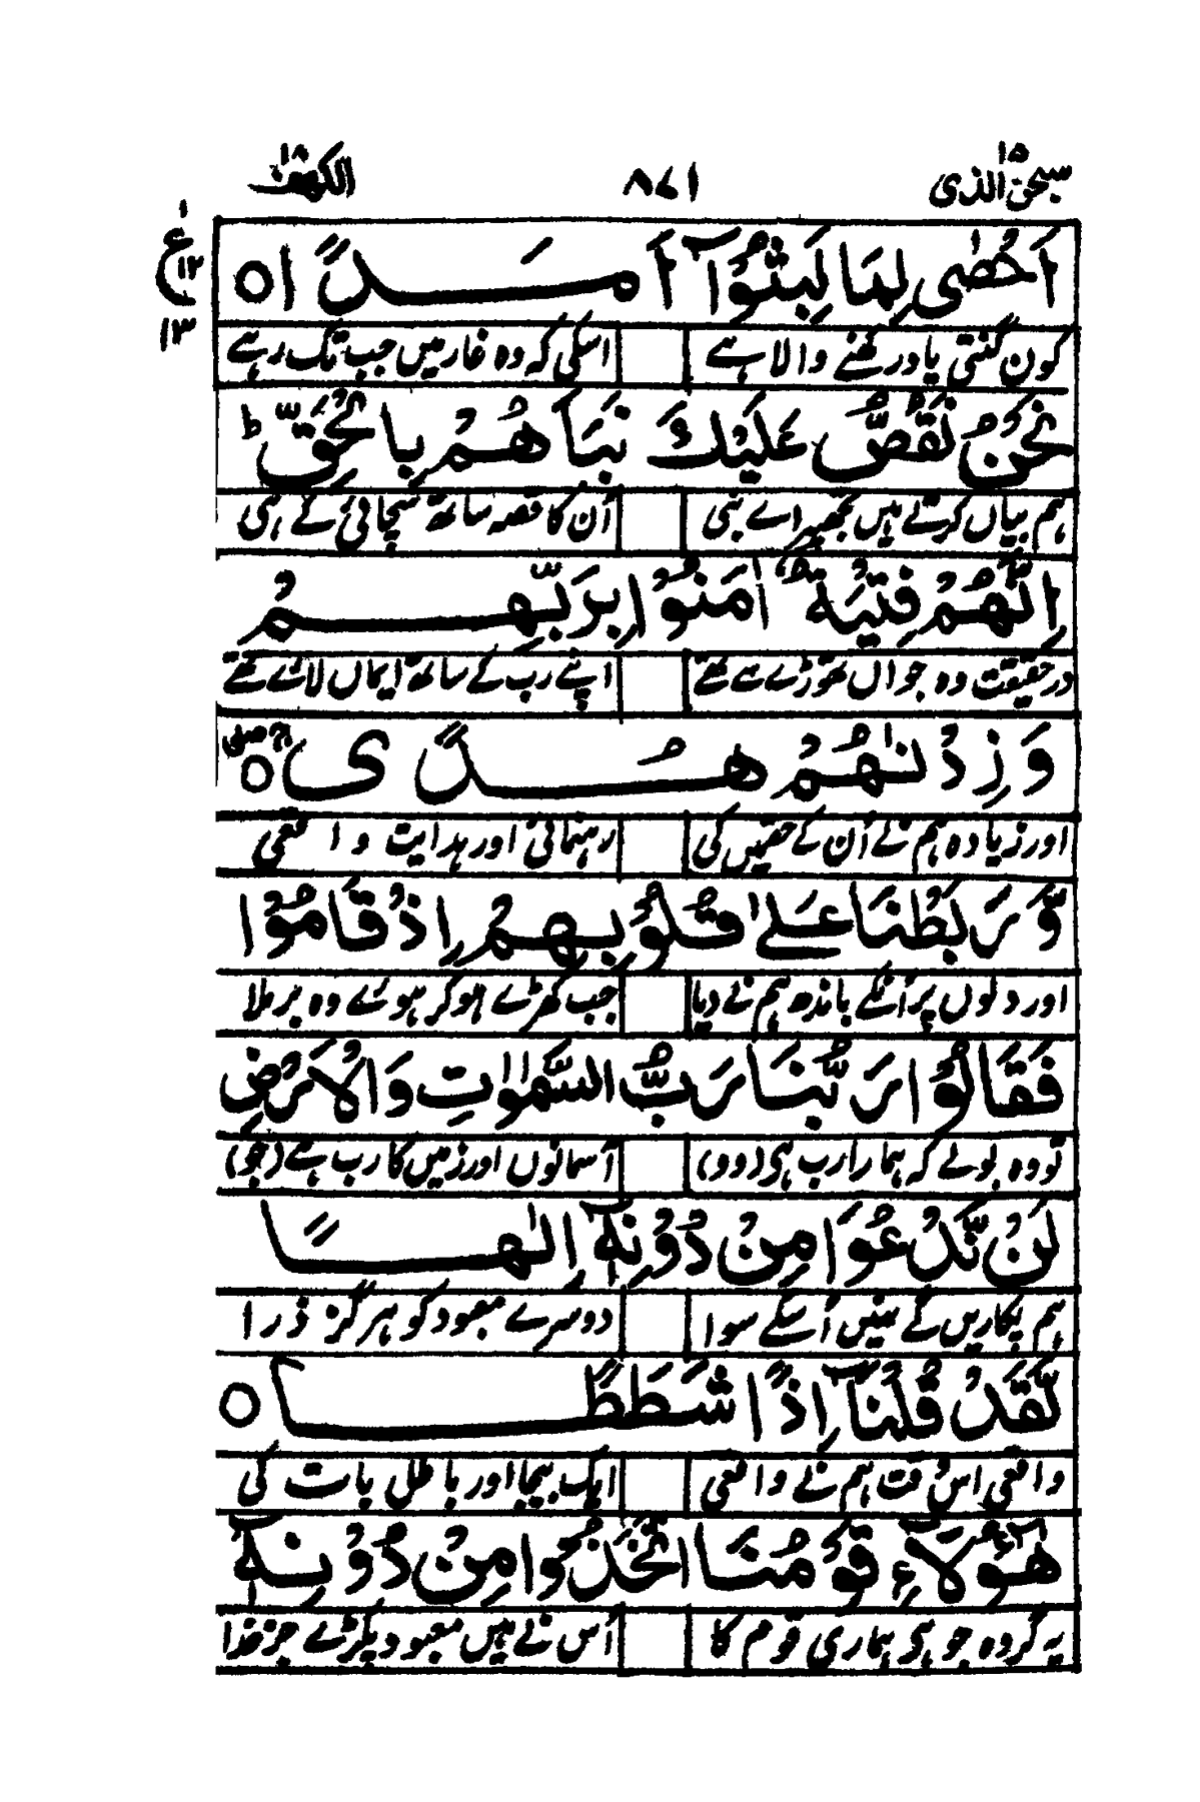 سبحٰن الذی ۱۵ ۸۷۱ الکھف ۱۸
اَحْصٰی لِمَا لَبِثُوْۤا اَمَدًا ○
کون گنتی یاد رکھنے والا ہے اسکی کہ وہ غار میں جب تک رہے
ع ۱ ۱۲ ۱۳
نَحْنُ نَقُصُّ عَلَیْكَ نَبَاَهُمْ بِالْحَقِّ ؕ
ہم بیاں کرتے ہیں تجھپر اے نبی اُن کا قصہ ساتھ سچائی کے ہی
اِنَّهُمْ فِتْیَةٌ اٰمَنُوْا بِرَبِّهِمْ
درحقیقت وہ جواں تھوڑے سے تھے اپنے رب کے ساتھ ایماں لائے تھے
وَ زِدْنٰهُمْ هُدًی ○
اور زیادہ ہم نے اُن کے حقمیں کی رہنمائی اور ہدایت واقعی
وَّ رَبَطْنَا عَلٰی قُلُوْبِهِمْ اِذْ قَامُوْا
اور دلوں پر اُنکے باندھ ہم نے دیا جب کھڑے ہو کر ہوئے وہ برملا
فَقَالُوْا رَبُّنَا رَبُّ السَّمٰوٰتِ وَالْاَرْضِ
تو وہ بولے کہ ہمارا رب ہی (وو) آسمانوں اور زمیں کا رب ہے (جو)
لَنْ نَّدْعُوَا مِنْ دُوْنِهٖۤ اِلٰهًا
ہم پکاریں گے نہیں اُسکے سوا دوسرے معبود کو ہرگز ذرا
لَّقَدْ قُلْنَاۤ اِذًا شَطَطًا ○
واقعی اس وقت ہم نے واقعی ایک بیجا اور باطل بات کی
هٰۤؤُلَآءِ قَوْمُنَا اتَّخَذُوْا مِنْ دُوْنِهٖۤ
یہ گروہ جو ہی ہماری قوم کا اُس نے ہیں معبود پکڑے جز خدا